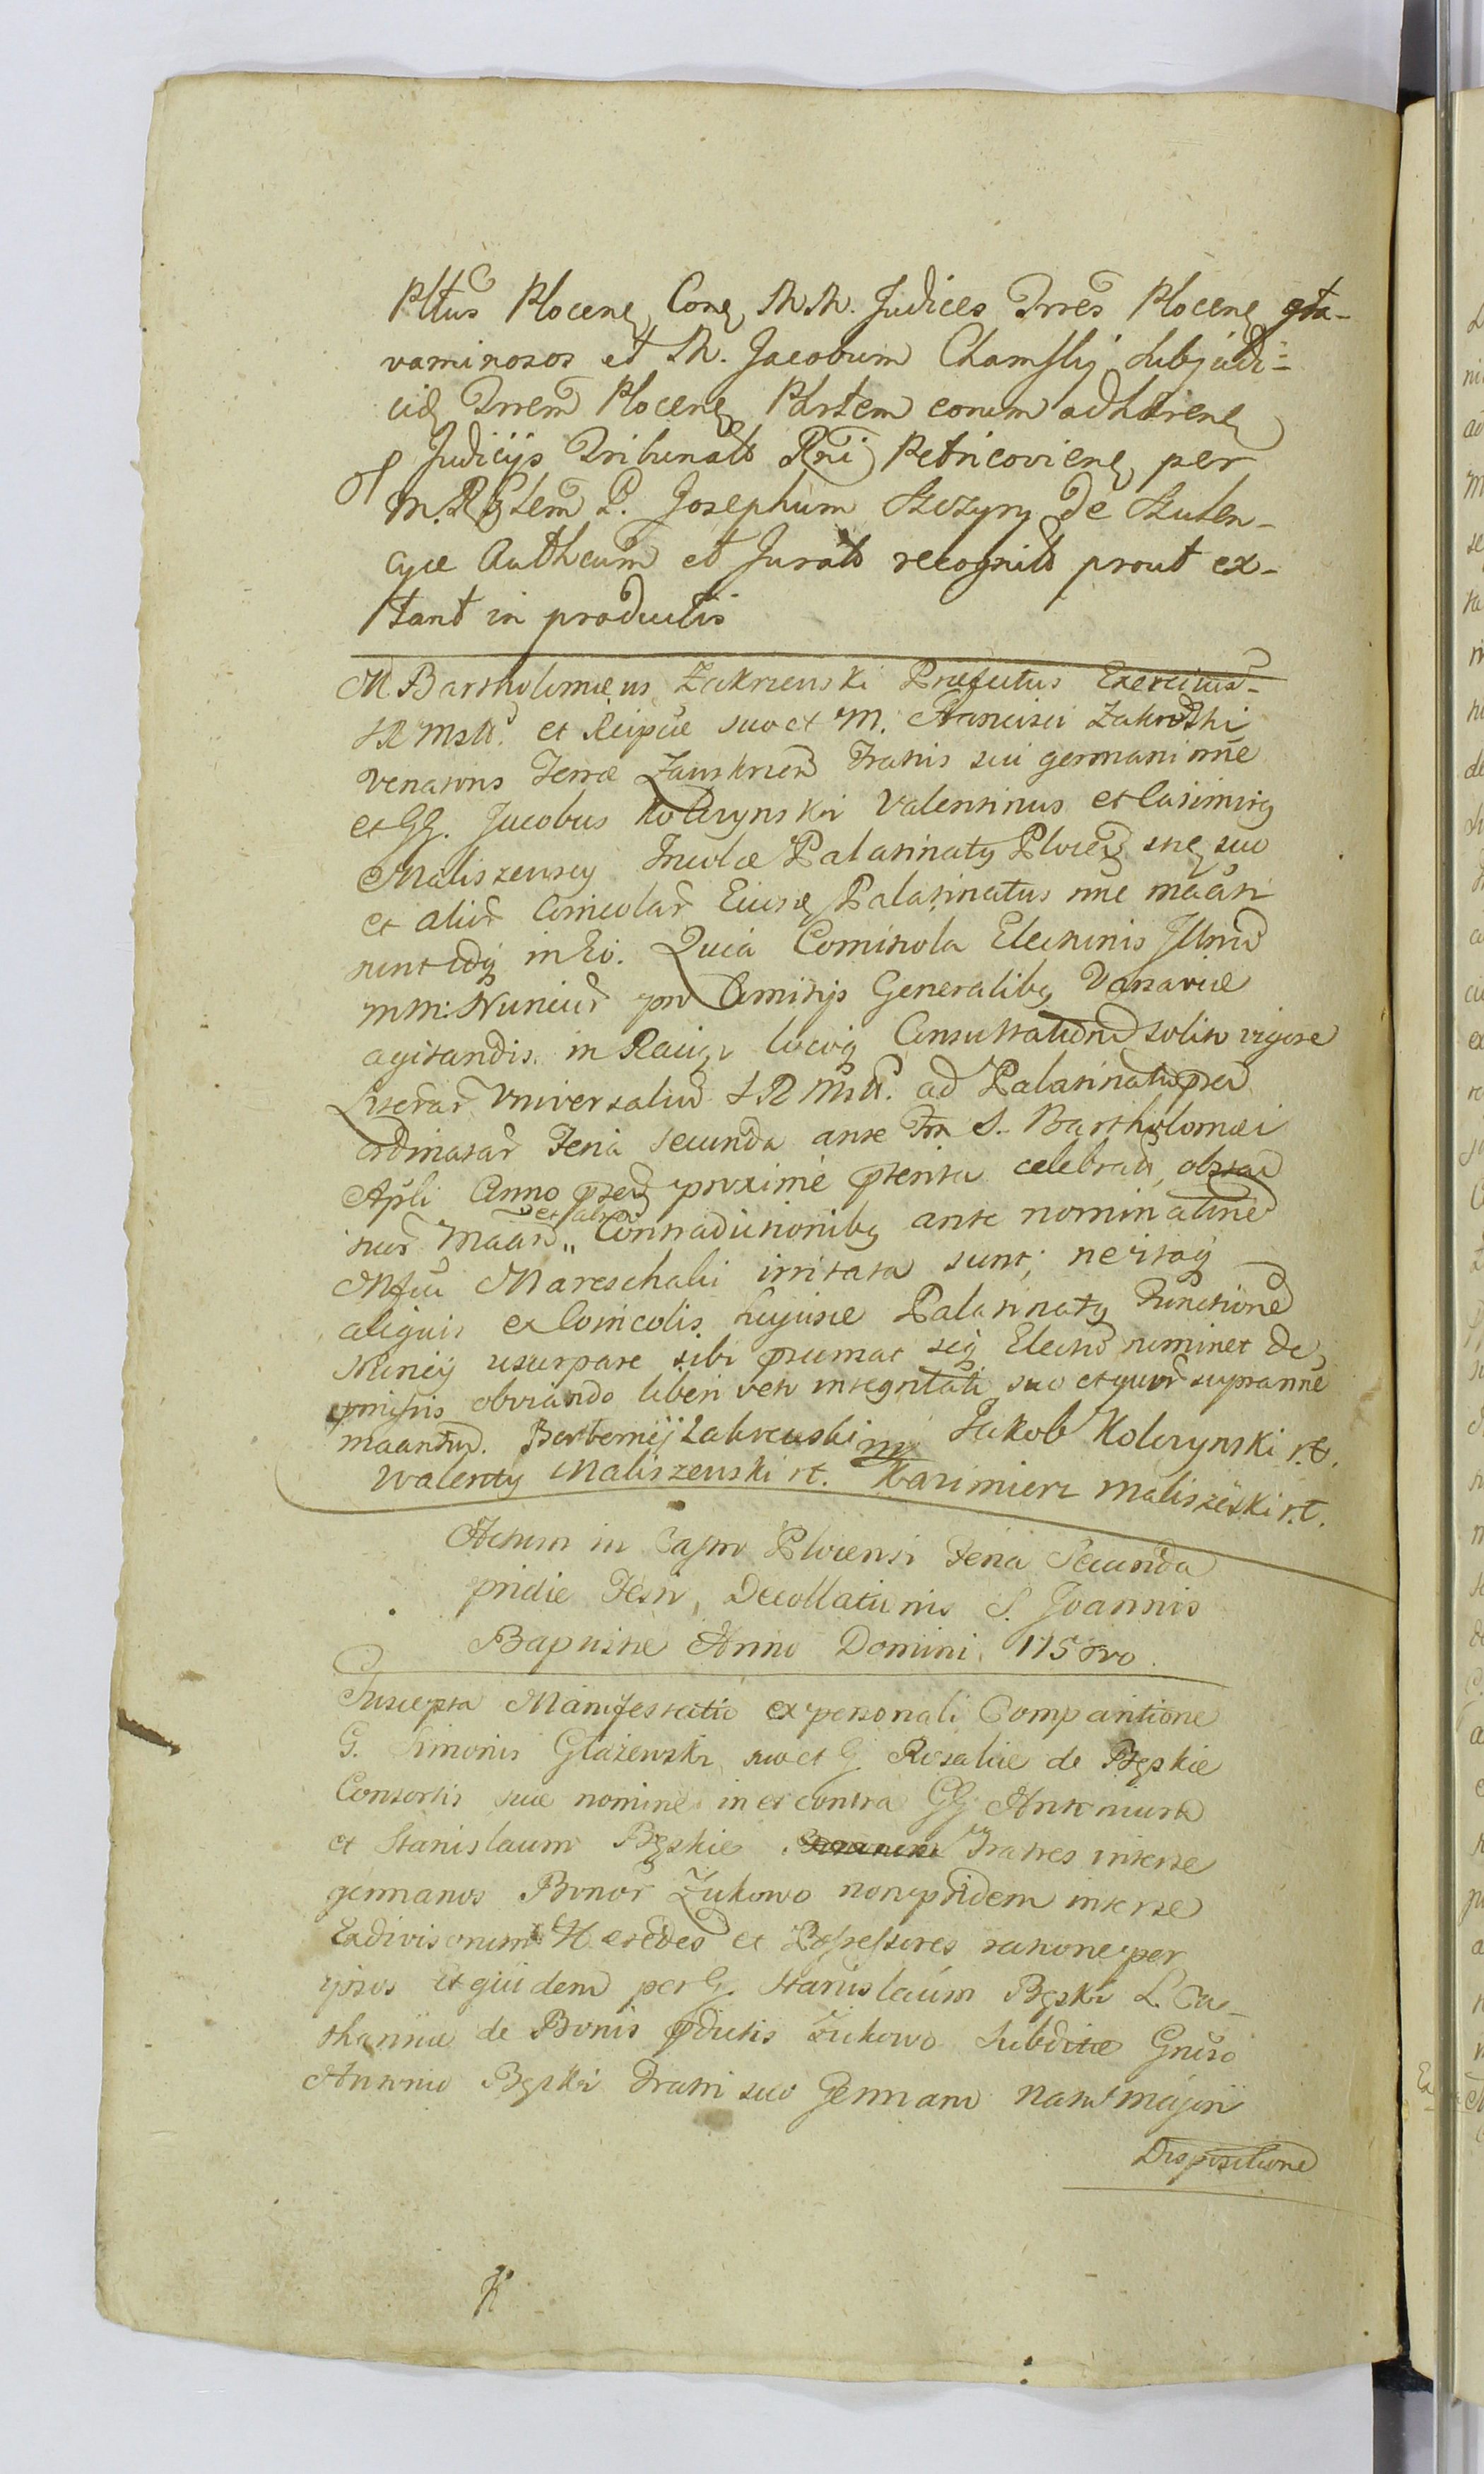 Pltus Plocen Con MM. Judices Trres Plocen gra-
vaminosos et M. Jacobum Chamski Subjudi-
cem Trrem Plocen Partem eorum adhaeren
Judicijs Tribunalis Rni Petricovien per
M. Josephum de
et Jurato recognito prout ex-
stant in productis
M Bartholomæus Zakrzewski Præfectus Exercitus
SRMstt. et Reipcæ suo et M. Francisci Zakrzewski
Venatoris Terræ Zauskrzen Fratris sui germani nne
et GG. Jacobus Kolczynski Valentinus et Casimirg
Maliszewscy Incolæ Palatinatg Plocen suo
et alior Coincolar Ejus Palatinatus nne maati
sunt idq in Eo. Quia Comitiola Electionis Illrm
MM: Nuncior pro Comitijs Generalibg Varsaviæ
agitandis in Raciąz locoq Consultationm solito vigore
Literar Universaliu SRMstt. ad Palatinatu præd
ordinatar Feria secunda ante Fm S. Bartholomæi
Apli Anno præd proxime præterita celebrata, obstan
suor Maan et alior „ Contradictionibg ante nominatione
Mfci Mareschalci irritata sunt, ne itaq
aliquis ex Coincolis hujus Palatinatg Functione
Nuncij usurpare sibi præsumat seq Electu nominet de
præmissis obviando liberi veto integritati suo et quor supra nne
maantur. Bartłomiej Zakrzewski mp Jakob Kolczynski r.t.
Walenty Maliszewski rt. Kazimierz Maliszewski r.t.
Actum in Castro Plocensi Feria Secunda
pridie Festi, Decollationis S. Joannis
Baptistæ Anno Domini. 175
Suscepta Manifestatio ex personali Comparitione
G. Simonis Głażewski, suo et G Rosaliæ de Bęskie
Consortis suæ nomine in et contra GG Antonium
et Stanislaum Bęskie Fratres inter se
germanos Bonor Zukowo non pridem inter se
Exdivisorum Hæredes et Possessores ratione per
ipsos et quidem per G. Stanislaum Bęski L. Ca-
tharinæ de Bonis prædictis Zukowo Subditæ Gneroso
Antonio Bęski Fratri suo Germano natu majori
Dispositione